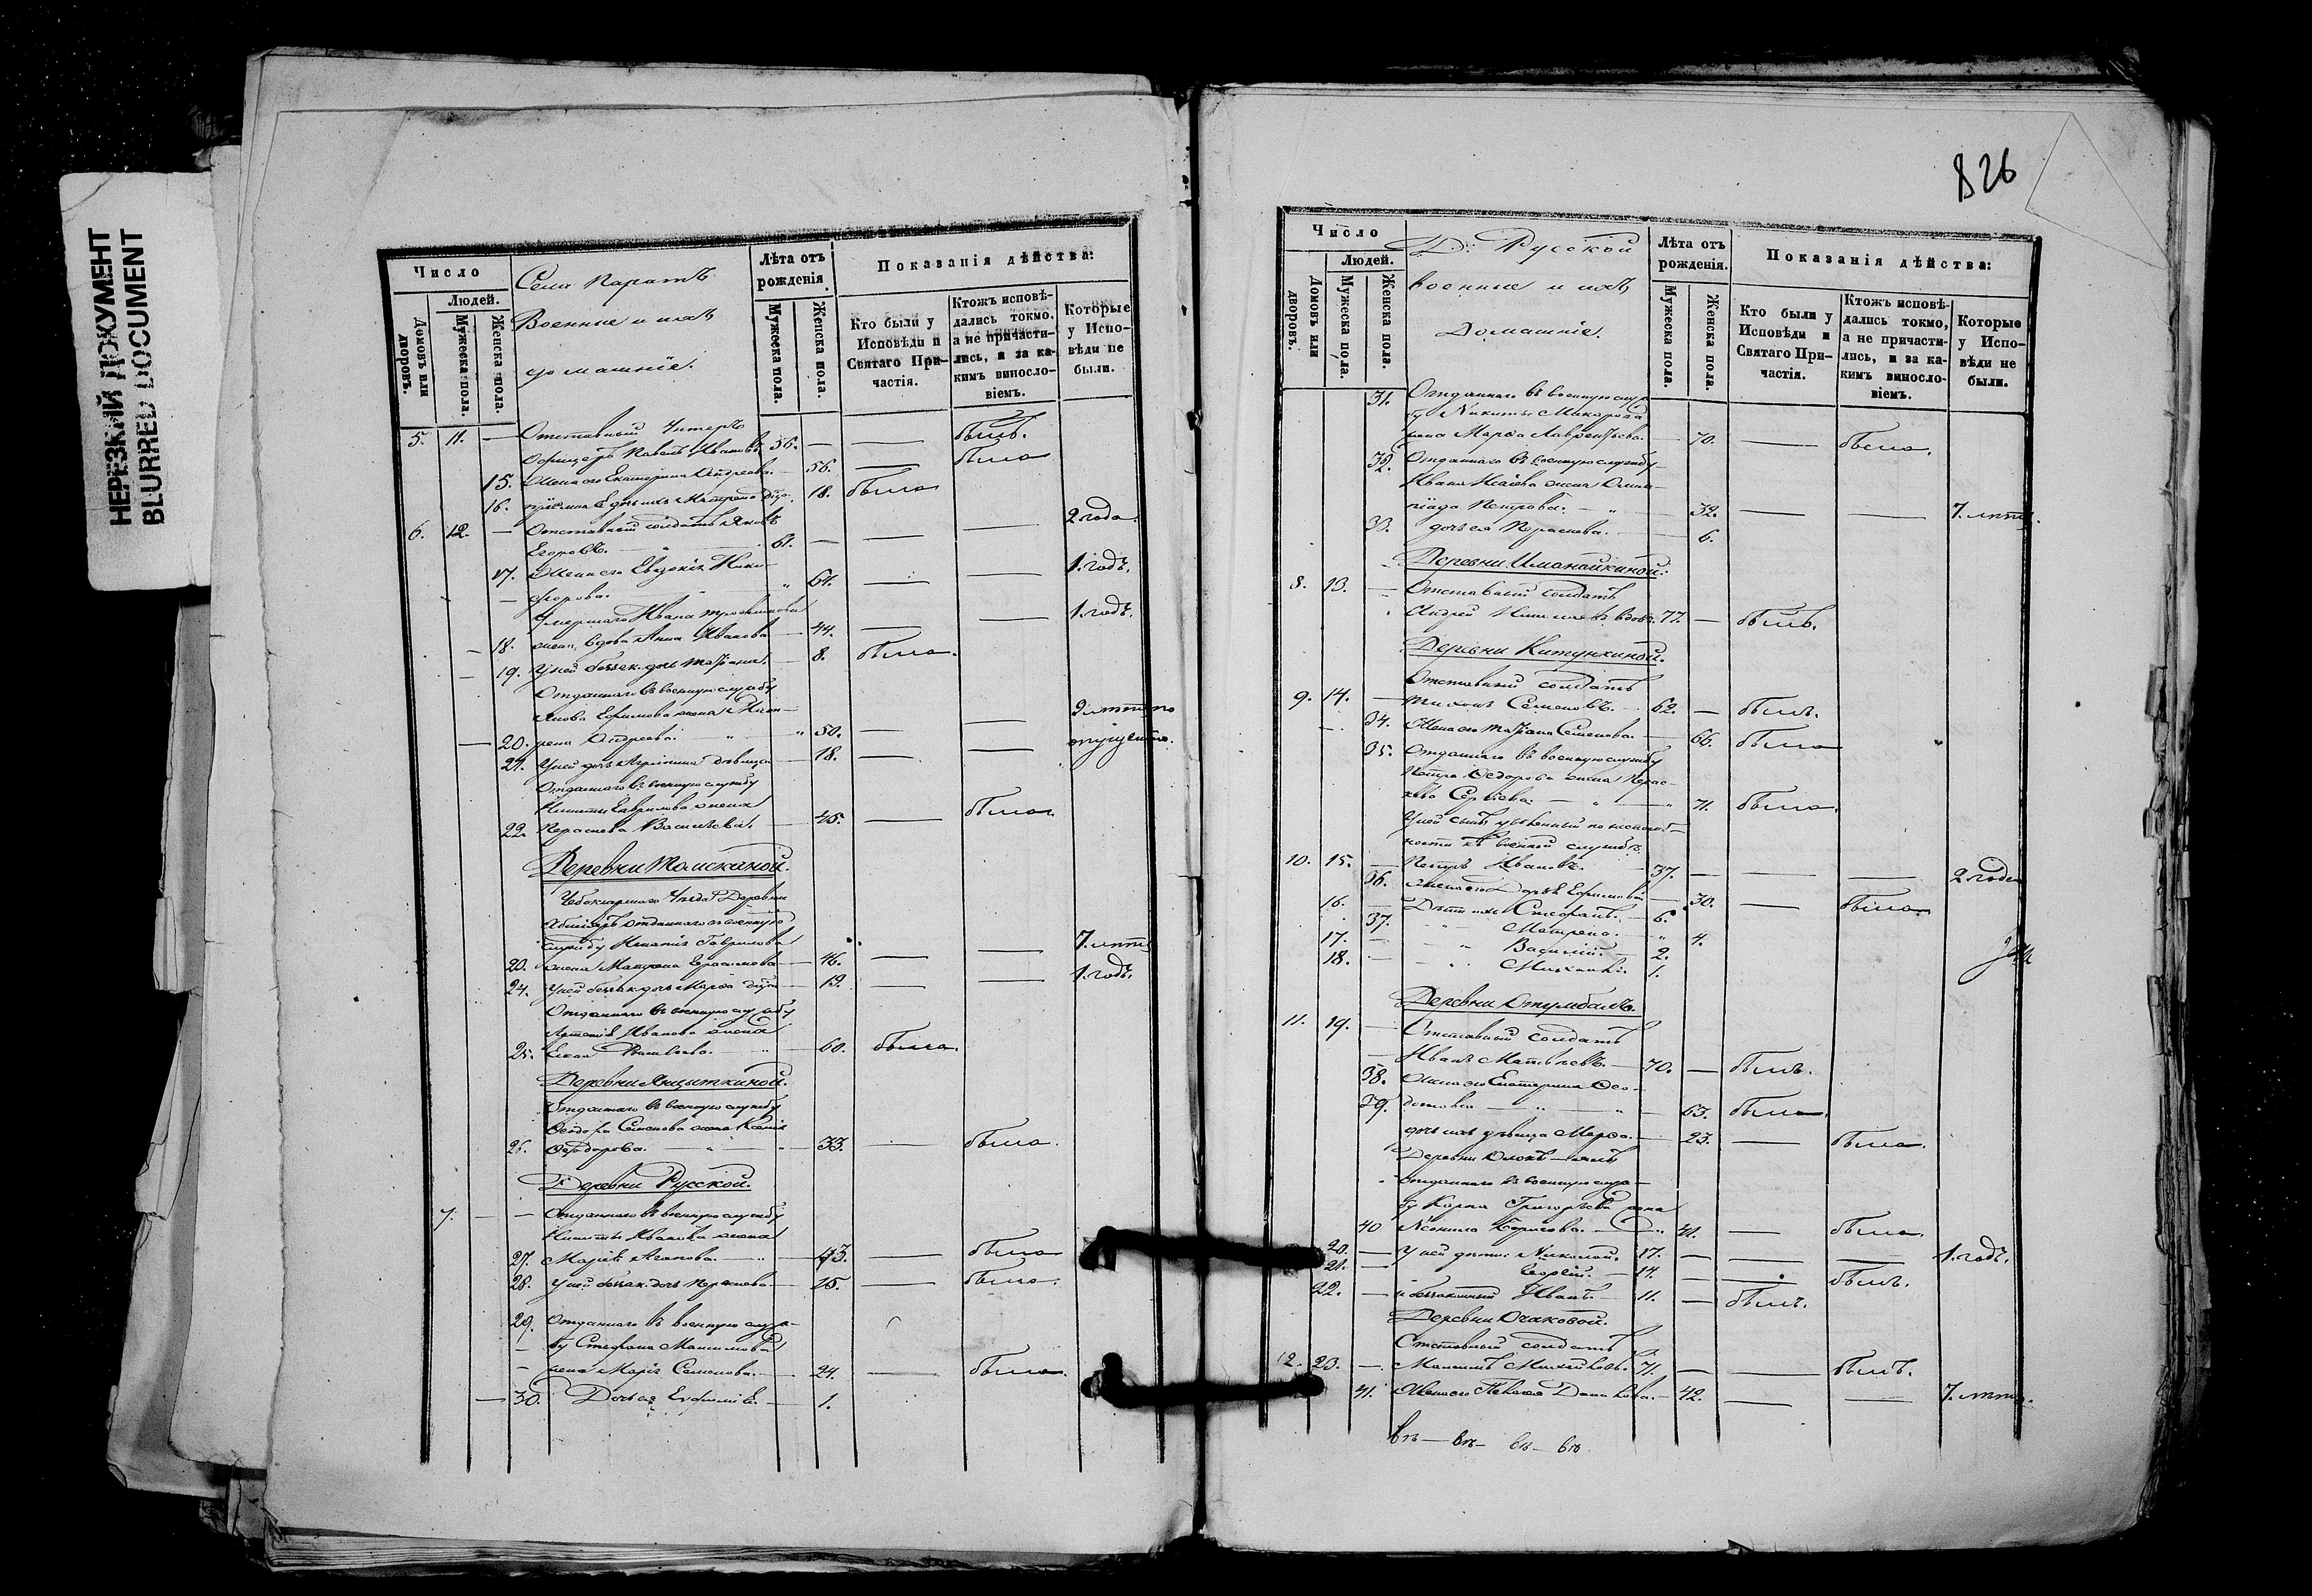 НЕРЕЗКИЙ ДОКУМЕНТ
BLURRED DOCUMENT
Число
Людей.
Домовъ или дворовъ.
Мужеска пола.
Женска пола.
Села Паратъ
Военные и ихъ
домашніе.
Лѣта отъ рожденія.
Мужеска пола.
Женска пола.
Показанія дѣйства:
Кто были у Исповѣди и Святаго Причастія.
Ктожъ исповѣдались токмо, а не причастились, и за какимъ винословіемъ.
Которые у Исповѣди не были.
5. 11. — Отставный Унтеръ
Офицеръ Павелъ Ивановъ 56. — — былъ.
15. Жена его Екатерина Андреева — 56. — была
16. Матрена 18. была
6. 12. — Отставный солдатъ Яковъ
Егоровъ. 61. — — — 2 года.
17. Жена его Евдокія Ники-
форова. 64. — — 1. годъ.
Умершаго Ивана Трофимова
18. жена вдова Анна Иванова — 44. — — 1. годъ.
19. У ней беззак. дочь Татіана — 8. была.
Отданнаго въ военную службу
Якова Ефимова жена
20. Андреева 50. — —
21. У ней дочь дѣвица — 18. — — опущенію.
Отданнаго въ военную службу
Никиты Гаврилова жена
22. Параскева Васильева. — 45. — была.
Деревни
Чебоксарскаго Уѣзда Деревни
отданнаго въ военную
службу Игнатія Гаврилова
23. жена Матрена Герасимова — 46. — — 7. лѣтъ
24. У ней беззак. дочь Марѳа — 19. — — 1. годъ.
Отданнаго въ военную службу
Иванова жена
25. Елена — 60. была.
Деревни
Отданнаго въ военную службу
Ѳеодора Семенова жена Ксенія
26. Ѳеодорова. — 33. — была.
Деревни Русской.
7. — — Отданнаго въ военную службу
Никиты Иванова жена
27. Марія Агапова. — 43. — была
28. У ней беззак. дочь Параскева — 15. — была.
29. Отданнаго въ военную служ-
бу Стефана Максимова
жена Марія Семенова. — 24. — была.
30. Дочь ея Евфимія. — 1.
826
Число
Людей.
Домовъ или дворовъ.
Мужеска пола.
Женска пола.
Д. Русской
военные и ихъ
домашніе.
Лѣта отъ рожденія.
Мужеска пола.
Женска пола.
Показанія дѣйства:
Кто были у Исповѣди и Святаго Причастія.
Ктожъ исповѣдались токмо, а не причастились, и за какимъ винословіемъ.
Которые у Исповѣди не были.
31. Отданнаго въ военную служ-
бу Никиты Макарова
жена Марѳа Лаврентьева. — 70. — была.
32. Отданнаго въ военную службу
Ивана Исаева жена Олим-
піада Петрова. — 32. — — 7. лѣтъ.
33. дочь ея Параскева. — 6.
Деревни
8. 13. — Отставный солдатъ
Андрей вдовъ. 77. — былъ.
Деревни Китункиной.
Отставный солдатъ
9. 14. — Тихонъ Семеновъ. 62. — былъ.
34. Жена его Татіана Семенова. — 66. была
35. Отданнаго въ военную службу
Петра Ѳедорова жена Парас-
кева Сергіева. — 71. была.
У ней сынъ уволенный по неспособ-
ности къ военной службѣ
10. 15. — Петръ Ивановъ. 37. — — — 2 года
36. Жена его Дарья Ефимова — 30. — была.
16. — Дѣти ихъ Стефанъ. — 6.
37. Матрена. — 4.
17. — Василій. — 2.
18. — Михаилъ. 1.
Деревни
11. 19. — Отставный солдатъ
Иванъ Матвѣевъ. — 70. — былъ.
38. Жена его Екатерина Ѳео-
39. дотова — 63. была.
дочь ихъ дѣвица Марѳа. — 23. — была.
Деревни
Отданнаго въ военную служ-
бу Карпа Григорьева жена
40 Борисова. — 41. — была.
20. — У ней дѣти: Николай. 17. — — — 1. годъ.
21. — Георгій. — 14. — — былъ.
22. — и беззаконный Иванъ. — 11. — былъ.
Деревни Очаковой.
Отставный солдатъ
12. 23. — Максимъ Михайловъ. 71. — — былъ.
41. Жена его Данилова. — 42. — — 7. лѣтъ.